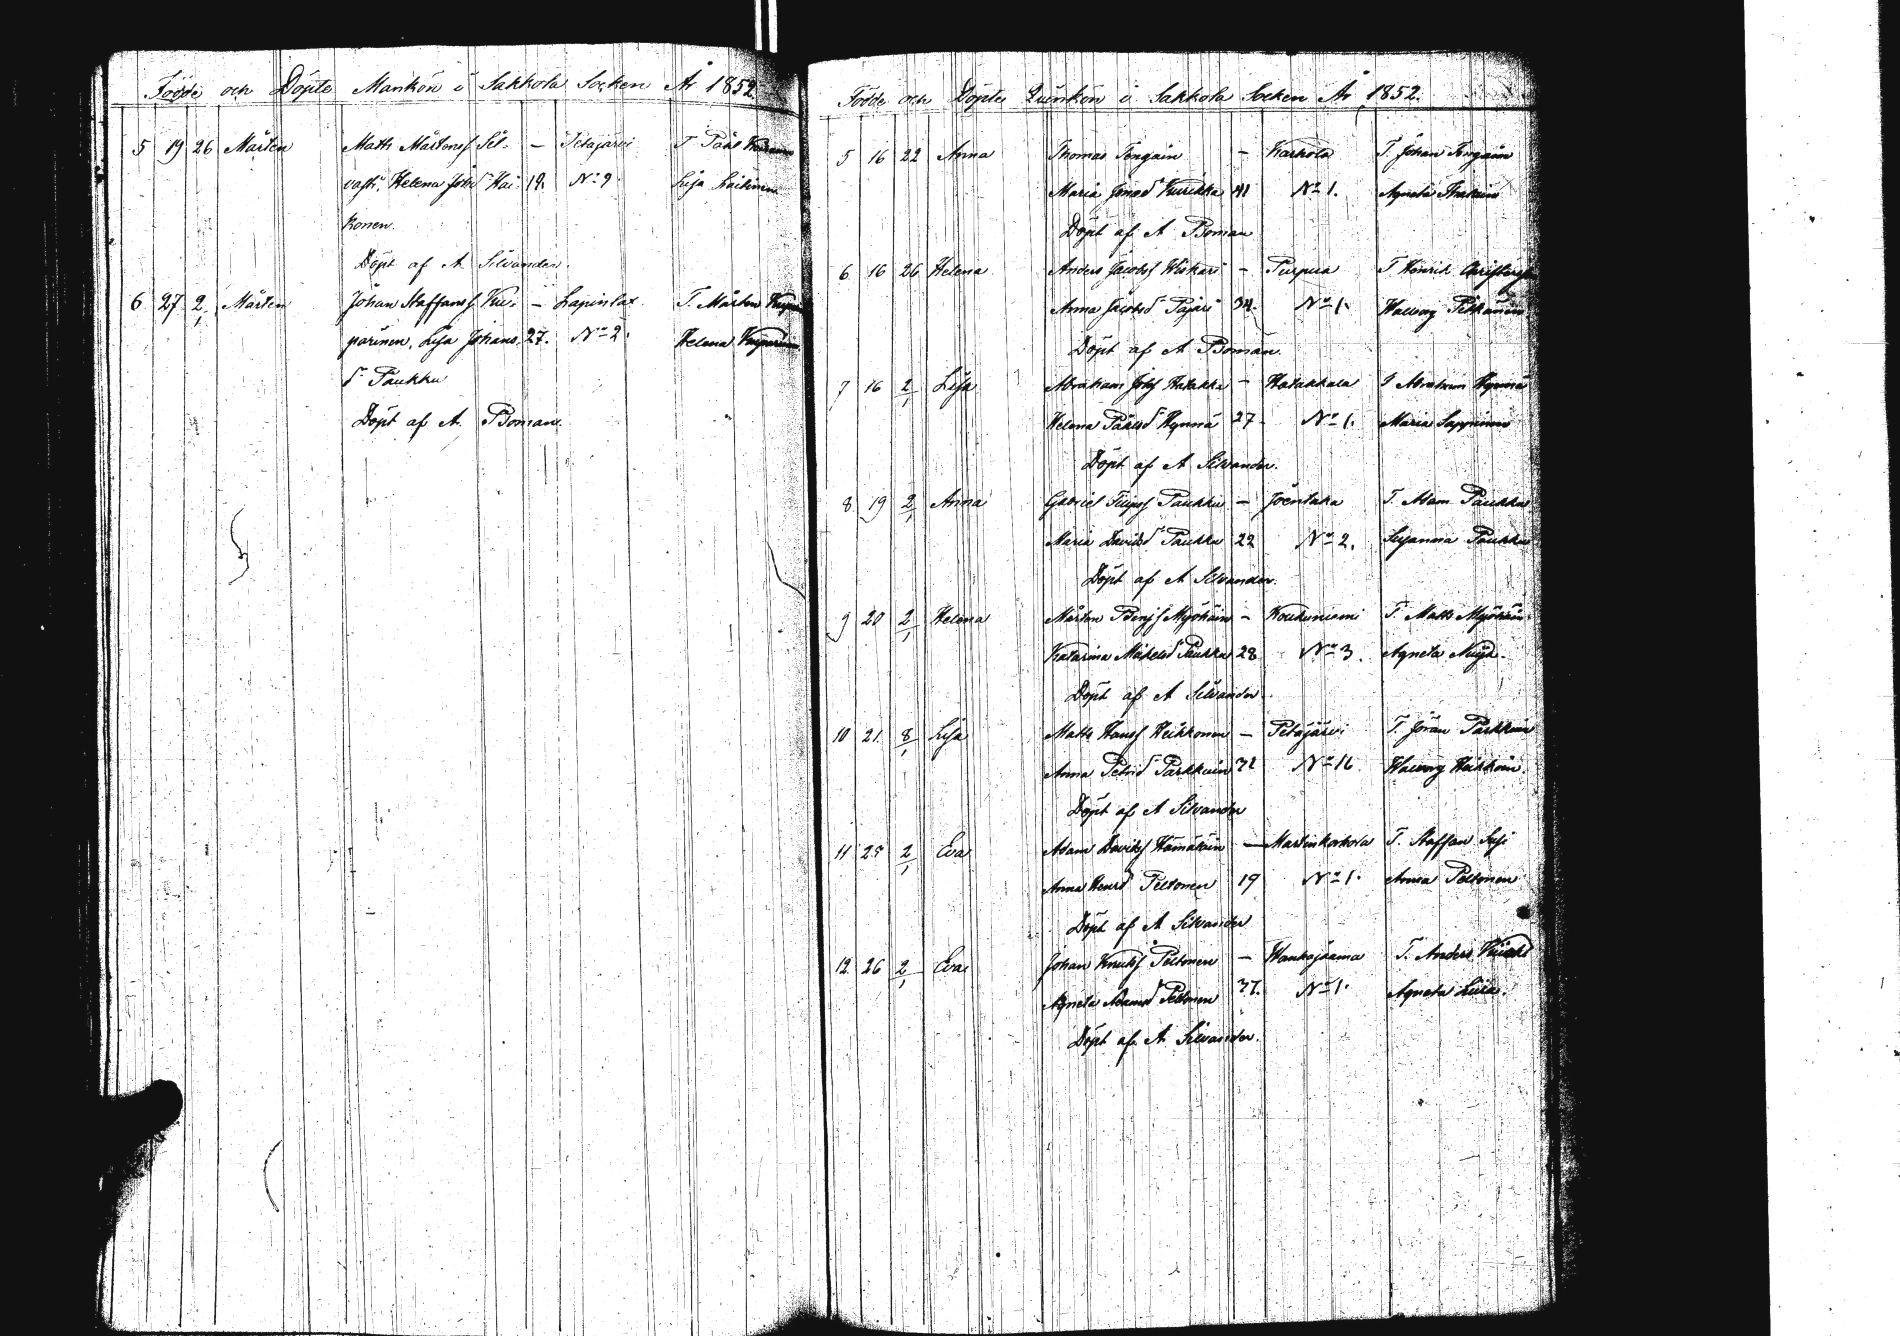 Födde och Döpte Mankön i Sakkola Socken År 1852
5 19 26 Mårten Matts Mårtenss Sil- — Petäjärvi T. Påhl
vasti, Helena Jöbsd Hai- 19. No 9. Lisa Laitinen
konen.
Döpt af A Silvander.
6 27 2/1 Mårten Johan Staffanss Kui- — Lapinlax T. Mårten
parinen, Lisa Johans- 27. No 2. Helena Kuparinen
d Paukku
Döpt af A. Boman.
Födde och Döpte Quinkön i Sakkola Socken År 1852.
5 16 22 Anna Thomas Tengain — Karhola T. Johan Tengain
Maria Jonasd Kuirikka 41 No 1. Agneta
Döpt af A Boman
6 16 26 Helena Anders Jacobss Wiskari — Purpua T Henrik Christerss
Anna Jacobsd Pajari 34. No 1. Walborg Pitkänen
Döpt af A Boman.
7 16 2/1 Lisa Abraham Jöbss Hatakka — Hatakkala T Abraham Hynnä
Helena Påhlsd Hynnä 27. No 1. Maria Seppinen
Döpt af A Silvander.
8 19 2/1 Anna Gabriel Filipss Paukku — Joentaka T. Adam Paukku
Maria Davidsd Paukku 22 No 2. Susanna Paukku
Döpt af A Silvander.
9 20 2/1 Helena Mårten Benjss Myöhäin — Koukuniemi T. Matts Myöhäin
Katarina Mickelsd Paukku 28 No 3. Agneta
Döpt af A Silvander.
10 21 8/1 Lisa Matts Hanss Heikkonen — Petäjärvi T. Jöran Parkkuin
Anna Petrid Parkkuin 31 No 16 Walborg Heikkoin.
Döpt af A Silvander
11 25 2/1 Eva Adam Davidss Hämäläin — Martinkorkola T. Staffan Susi
Anna Henrd Peltonen 19 No 1. Anna Peltonen
Döpt af A Silvander
12 26 2/1 Eva Johan Knutss Peltonen — Haukojkama T. Anders
Agneta Adamsd Peltonen 37. No 1. Agneta
Döpt af A. Silvander.